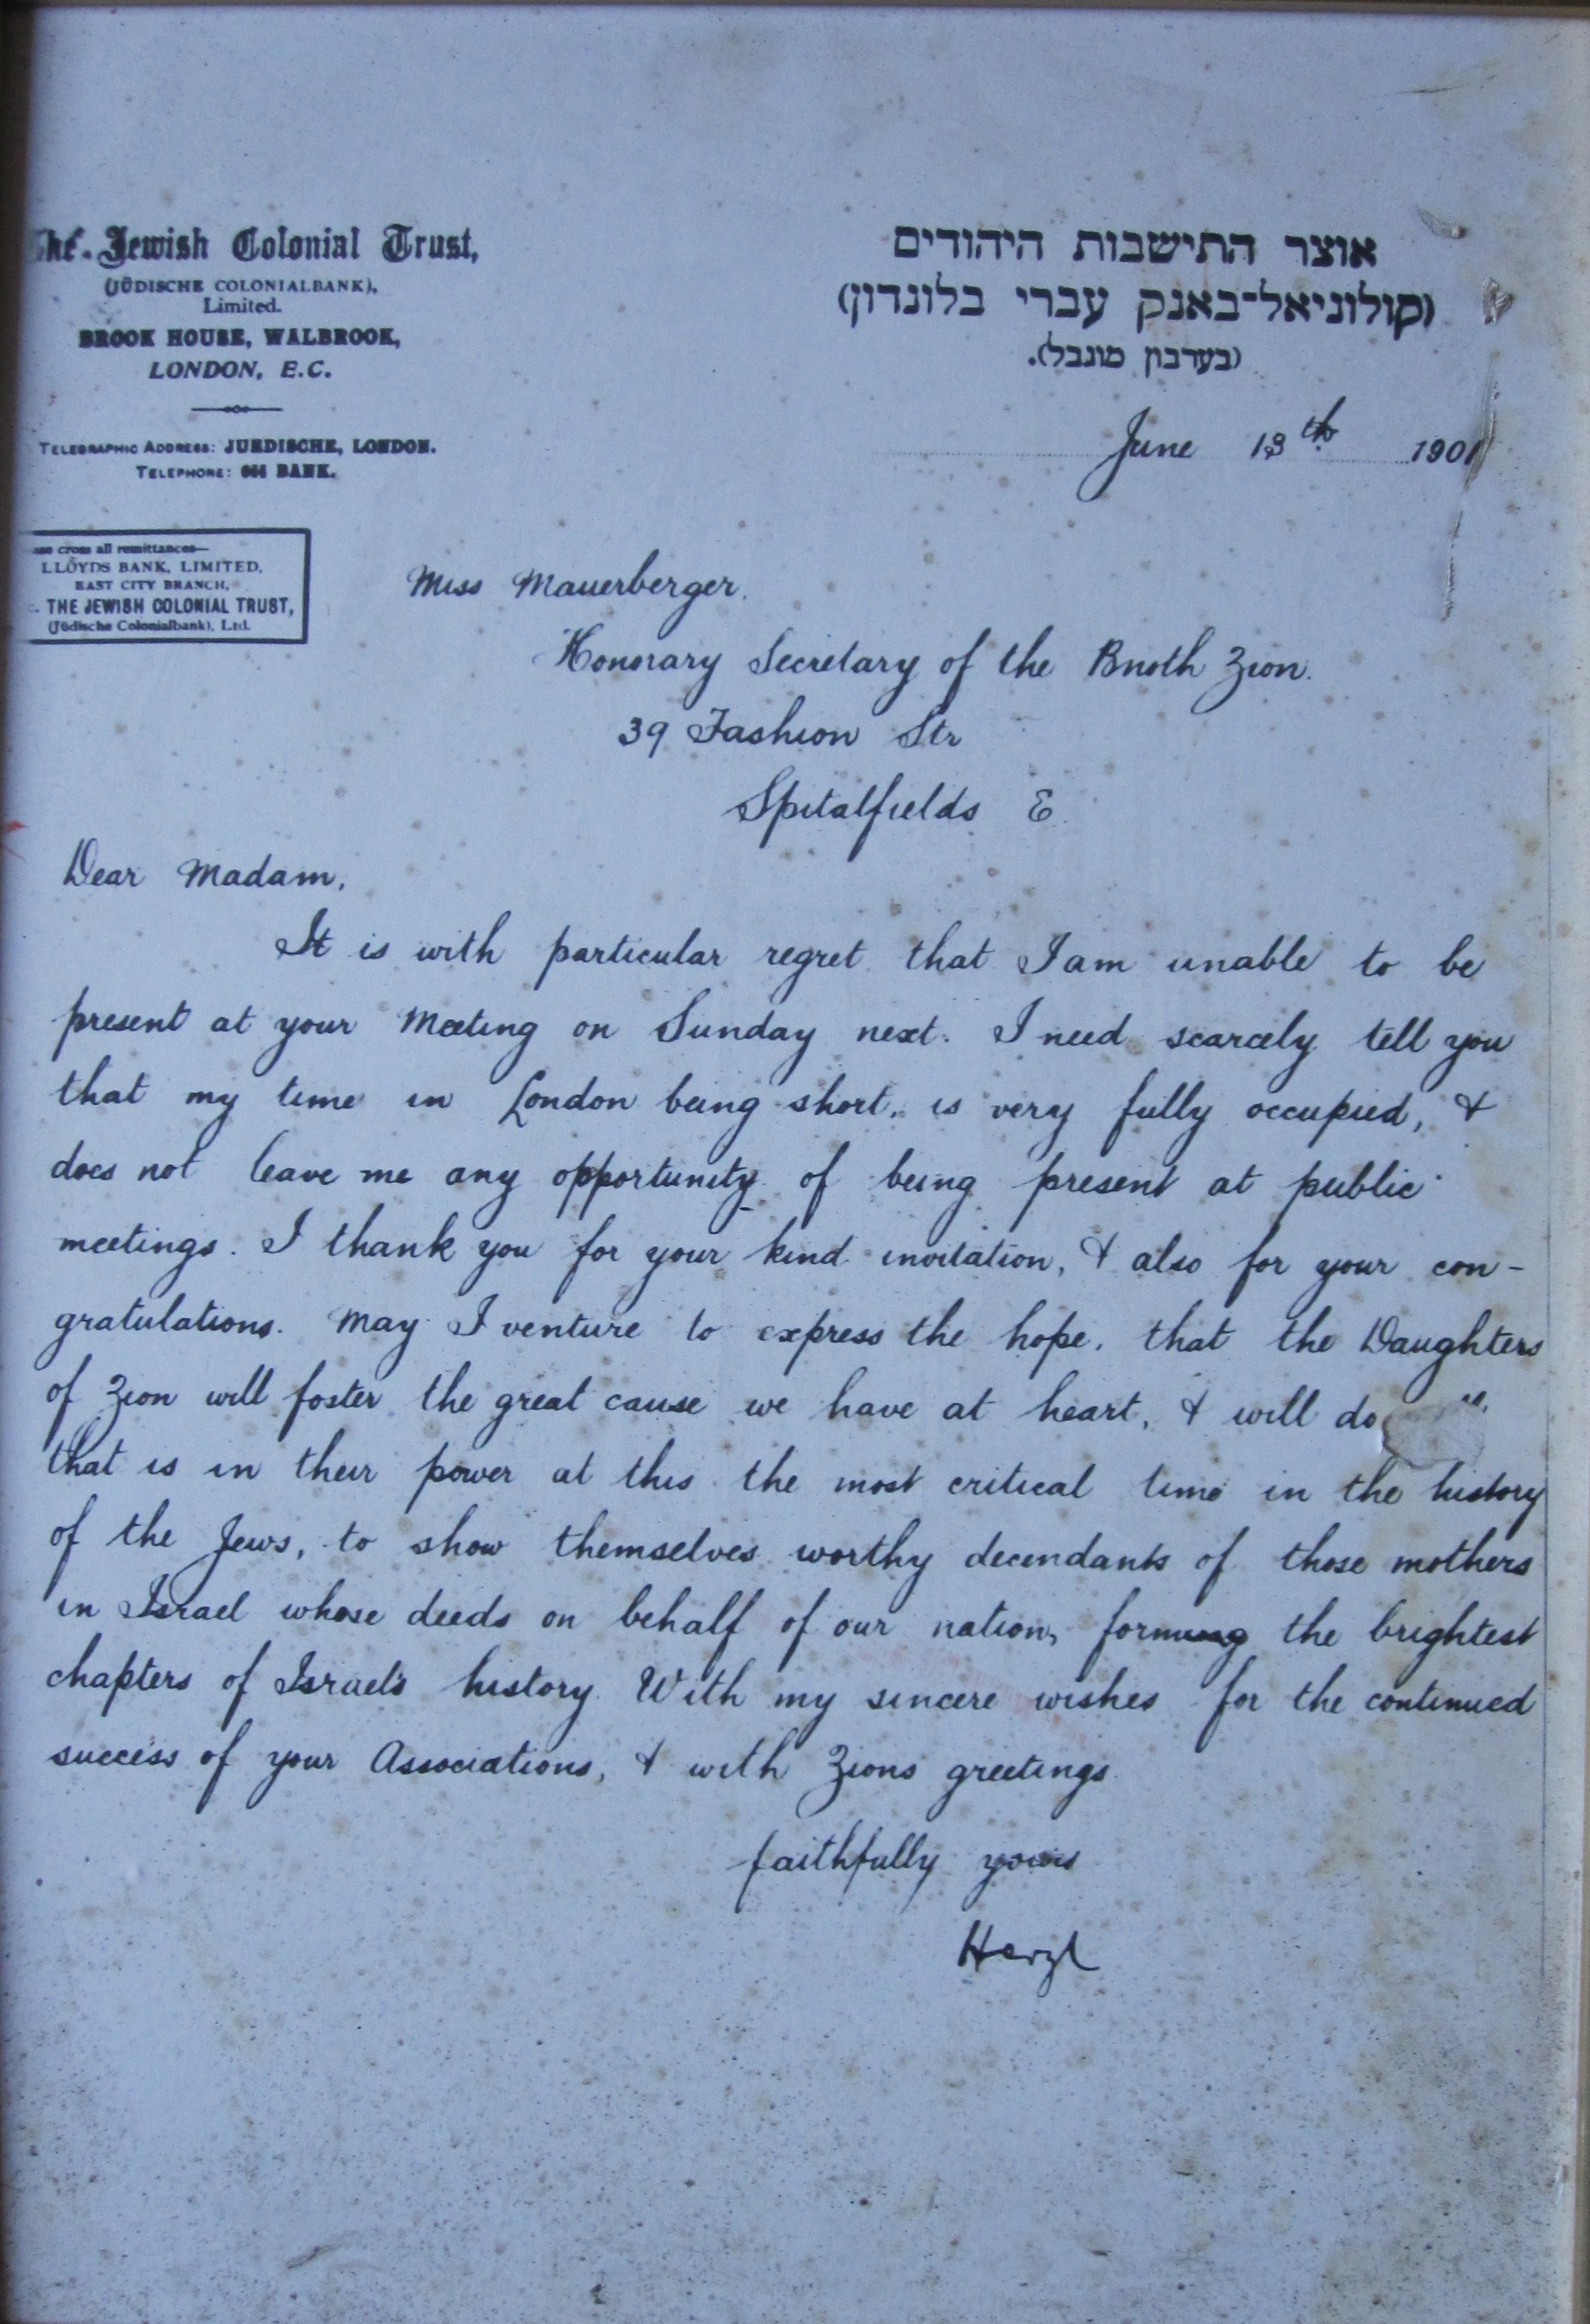 The Jewish Colonial Trust,
(JÜDISCHE COLONIALBANK),
Limited.
BROOK HOUSE, WALBROOK,
LONDON, E.C.
TELEGRAPHIC ADDRESS: JUEDISCHE, LONDON.
TELEPHONE: BANK.
אוצר התישבות היהודים
(קולוניאל־באנק עברי בלונדון)
(בערבון מוגבל).
June 13th 1901
cross all remittances—
LLOYDS BANK, LIMITED,
EAST CITY BRANCH,
THE JEWISH COLONIAL TRUST,
(Jüdische Colonialbank), Ltd.
Miss Mauerberger.
Honorary Secretary of the Bnoth Zion.
39 Fashion Str
Spitalfields E.
Dear Madam,
It is with particular regret that I am unable to be
present at your Meeting on Sunday next. I need scarcely tell you
that my time in London being short, is very fully occupied, &
does not leave me any opportunity of being present at public
meetings. I thank you for your kind invitation, & also for your con-
gratulations. May I venture to express the hope, that the Daughters
of Zion will foster the great cause we have at heart, & will do
that is in their power at this the most critical time in the history
of the Jews, to show themselves worthy decendants of those mothers
in Israel whose deeds on behalf of our nation, forming the brightest
chapters of Israel's history. With my sincere wishes for the continued
success of your Associations, & with Zions greetings
faithfully yours
Herzl